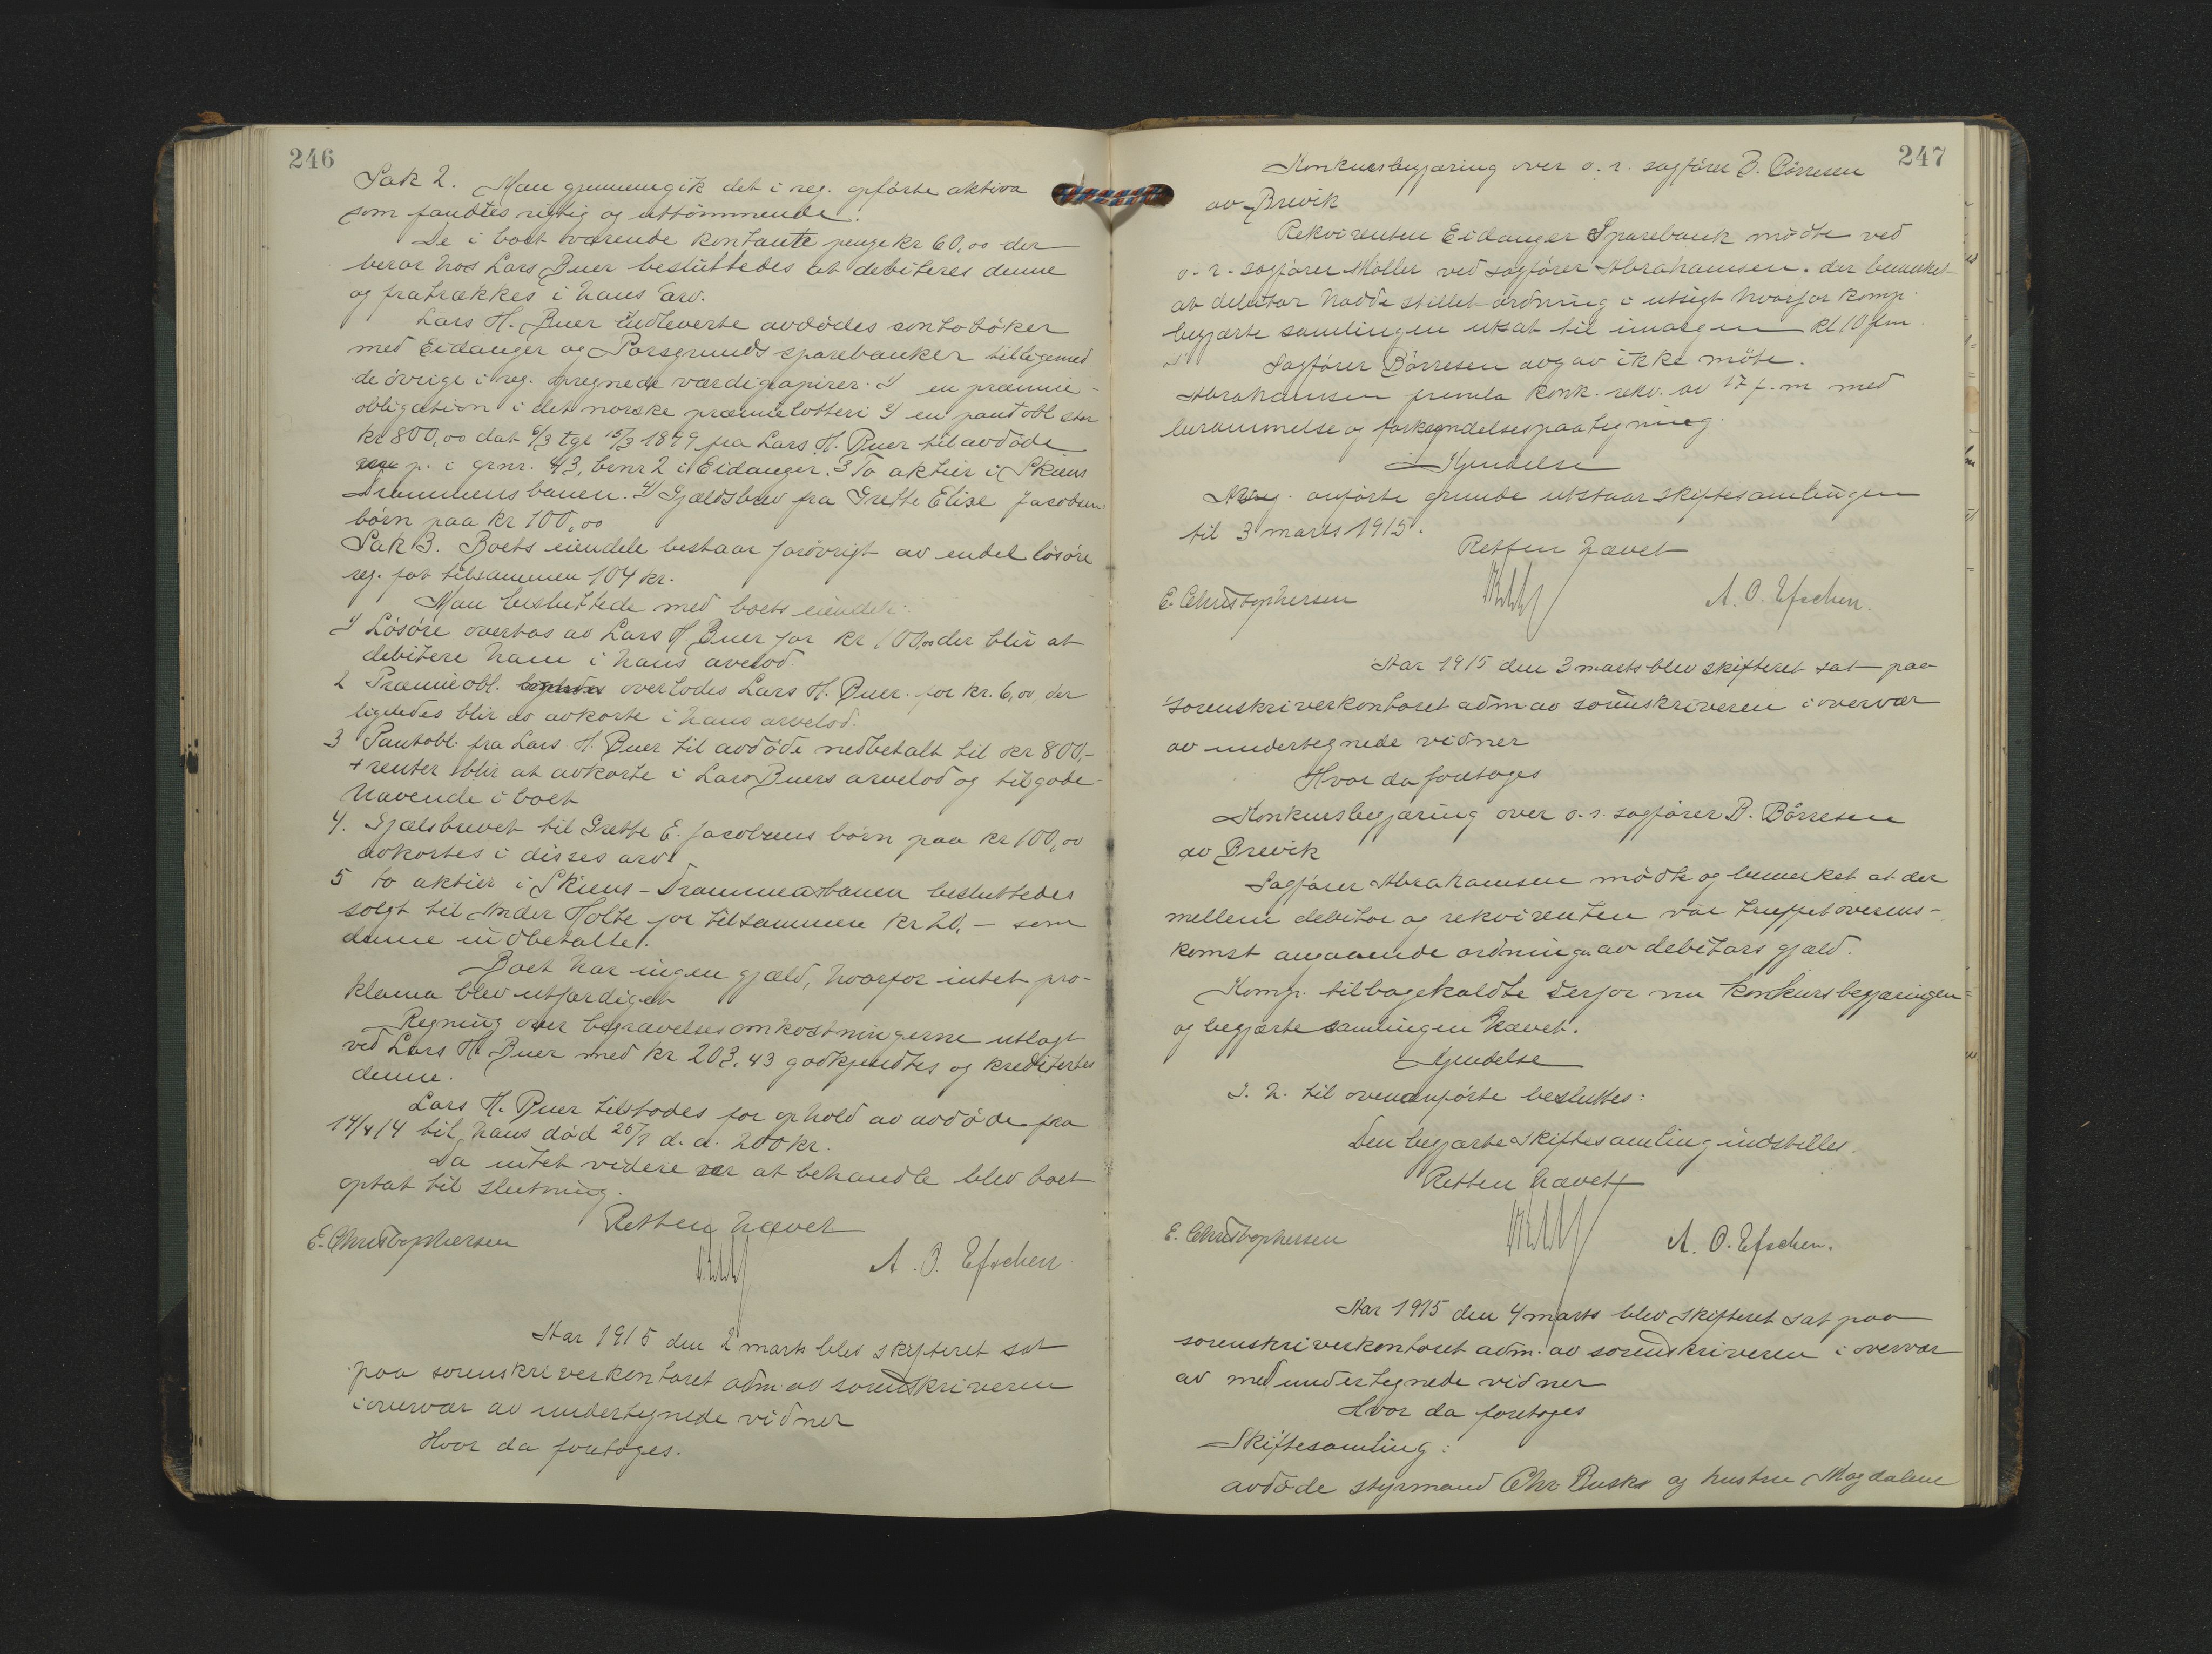 246
Sak 2. Man gjennemgik det i reg. opførte aktiva
som fandtes rigtig og uttømmende.
De i boet værende kontante penge kr 60,00 der
beror hos Lars Buer besluttedes at debiteres denne
og fratrækkes i hans arv.
Lars H. Buer indleverte avdødes contobøker
med Eidanger og Porsgrunds sparebanker tilligemed
de øvrige i reg. opregnede værdipapirer. 1) en præmie-
obligation i det norske præmielotteri 2) en pantobl stor
kr 800,00 dat 6/3 tgl 15/3 1899 fra Lars H. Buer til avdøde
p. i grnr. 43, brnr 2 i Eidanger. 3 To aktier i Skiens
Drammensbanen. 4) Gjældsbrev fra Grethe Elise Jacobsens
børn paa kr 100,00
Sak 3. Boets eiendele bestaar forøvrigt av endel løsøre
reg. for tilsammen 104 kr.
Man besluttede med boets eiendele:
1 Løsøre overtas av Lars H. Buer for kr 100,00 der blir at
debitere ham i hans arvelod.
2 Præmieobl. overlodes Lars H. Buer for kr. 6,00, der
ligeledes blir av avkorte i hans arvelod.
3 Pantobl. fra Lars H. Buer til avdøde nedbetalt til kr 800,-
+ renter blir at avkorte i Lars Buers arvelod og tilgode-
havende i boet
4. Gjælsbrevet til Grethe E. Jacobsens børn paa kr 100,00
avkortes i disses arv.
5 to aktier i Skiens-Drammensbanen besluttedes
solgt til Ander Holte for tilsammen kr 20,- som
denne indbetalte.
Boet har ingen gjæld, hvorfor intet pro-
klama blev utfærdiget
Regning over begravelsesomkostningerne utlagt
ved Lars H. Buer med kr 203,43 godkjendtes og krediteres
denne.
Lars H. Buer tilstodes for ophold av avdøde fra
14/4 14 til hans død 25/1 d. a. 200 kr.
Da intet videre var at behandle blev boet
optat til slutning.
Retten hævet
E. Christophersen
A. O. Efschen
Aar 1915 den 2 marts blev skifteret sat
paa sorenskriverkontoret adm. av sorenskriveren
i overvær av undertegnede vidner
Hvor da foretoges.
247
Konkursbegjæring over o. r. sagfører B. Børresen
av Brevik
Rekvirenten Eidanger Sparebank mødte ved
o. r. sagfører Møller ved sagfører Abrahamsen. der bemerket
at debitor hadde stillet ordning i utsigt hvorfor komp.
begjærte samlingen utsat til imorgen kl 10 fm.
Sagfører Børresen avgav ikke møte.
Abrahamsen fremla konk. rekv. av 17 f. m med
berammelse og forkyndelsespaategning.
Kjendelse
anførte grunde utstaar skiftesamlingen
til 3 marts 1915.
Retten hævet
E. Christophersen
A. O. Efschen.
Aar 1915 den 3 marts blev skifteret sat paa
sorenskriverkontoret adm av sorenskriveren i overvær
av undertegnede vidner
Hvor da foretoges
Konkursbegjæring over o. r. sagfører B. Børresen
av Brevik
Sagfører Abrahamsen mødte og bemerket at der
mellem debitor og rekvirenten var truffet overens-
komst angaaende ordningen av debitors gjæld.
Komp. tilbagekaldte derfor nu konkursbegjæringen
og begjærte samlingen hævet.
Kjendelse
I. h. til ovenanførte besluttes:
Den begjærte skiftesamling indstilles.
Retten hævet
E. Christophersen
A. O. Efschen.
Aar 1915 den 4 marts blev skifteret sat paa
sorenskriverkontoret adm. av sorenskriveren i overvær
av medundertegnede vidner
Hvor da foretoges
Skiftesamling:
avdøde styrmand Chr. Buska og hustru Magdalene